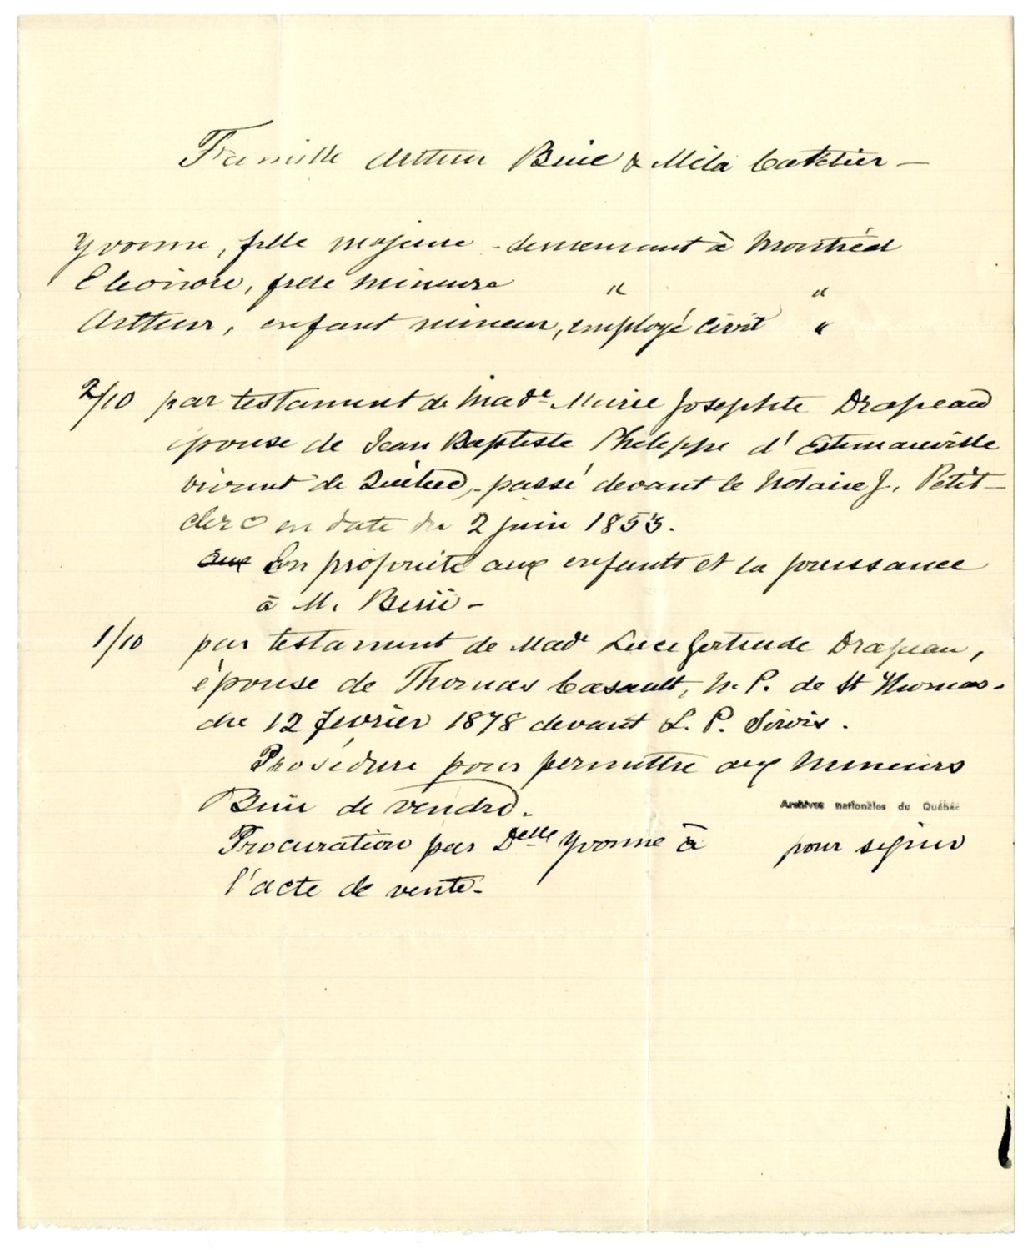 Famille Arthur Buie & Mila Catelier —
Yvonne, fille majeure - demeurant à Montréal
Eleonore, fille mineure " "
Arthur, enfant mineur, employé civil "
2/10 par testament de Made Marie Josephte Drapeau
épouse de Jean Baptiste Philippe d'Estimauville
vivant de Québec, - passé devant le Notaire J. Petit-
clerc en date du 2 juin 1853.
aux En propriété aux enfants et la jouissance
à M. Buie -
1/10 par testament de Made Luce Gertrude Drapeau,
épouse de Thomas Casault, N. P. de St Thomas -
du 12 février 1878 devant L. P. Sirois.
Procédure pour permettre aux mineurs
Buie de vendre.
Archives nationales du Québec
Procuration par Delle Yvonne à pour signer
l'acte de vente -